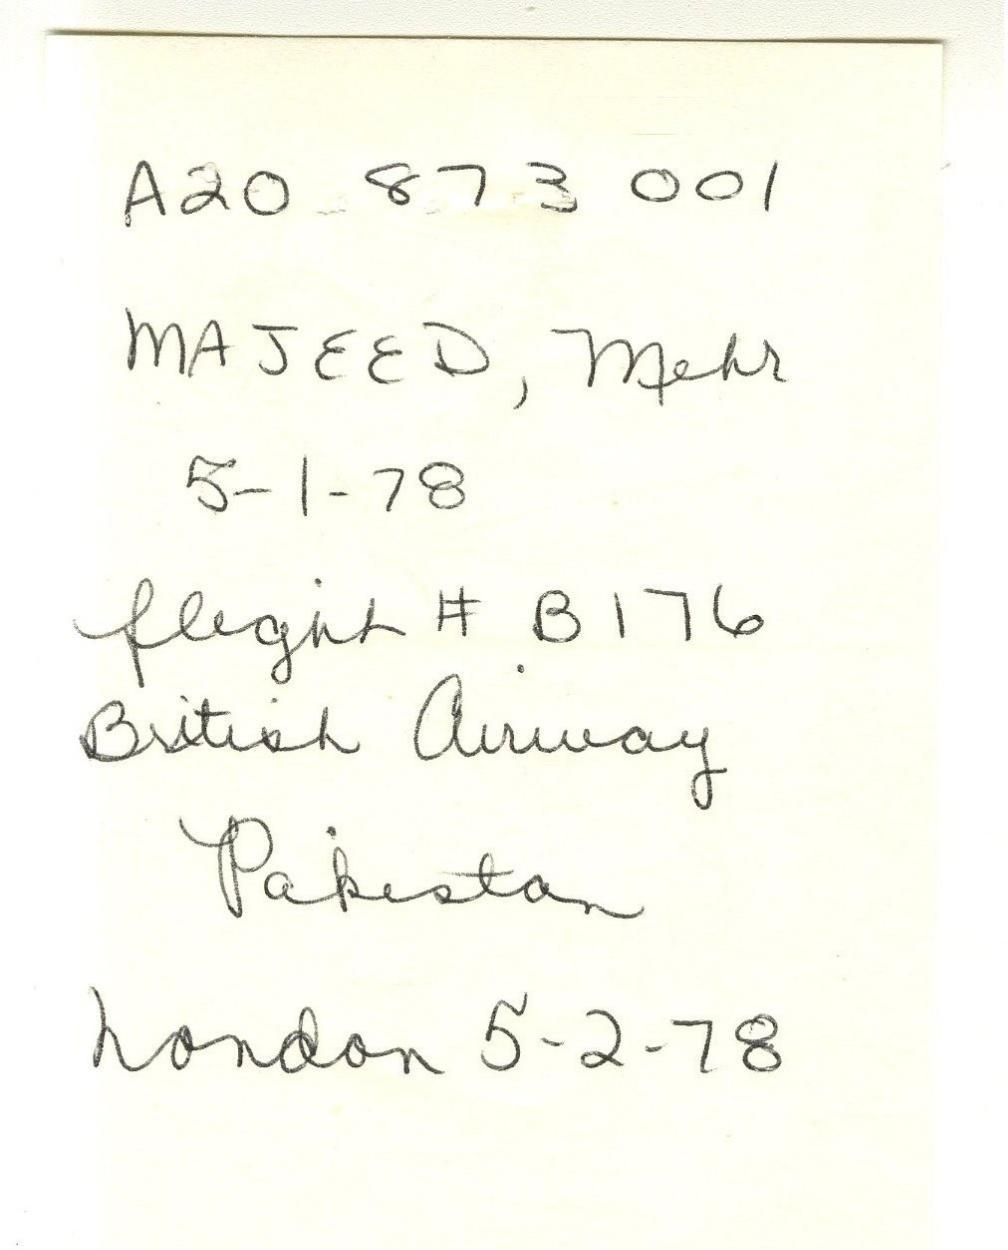 A20 873 001
MAJEED, Mehr
5-1-78
flight # B176
British Airway
Pakistan
London 5-2-78